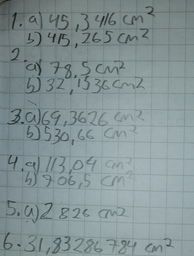 1. a) 45,3416 cm²
b) 415,265 cm²
2.
a) 78,5 cm²
b) 32,1536 cm2
3. a) 69,3626 cm2
b) 530,66 cm²
4. a) 113,04 cm²
b) 706,5 cm²
5. a) 2826 cm2
6. 31,83286784 cm²